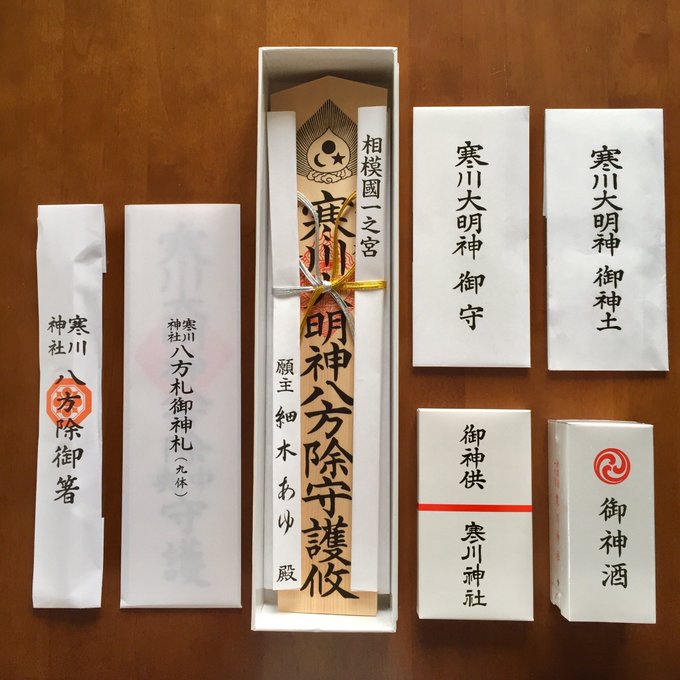 寒川神社 八方除御箸
寒川神社 八方札御神札(九体)
相模國一之宮
寒川大明神八方除守護攸
願主 細木あゆ 殿
寒川大明神 御守
寒川大明神 御神土
御神供
寒川神社
御神酒